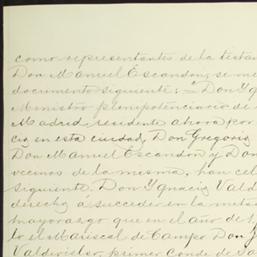 como representantes de la testam
Don Manuel Escandon, se me
documento siguiente: = Don Yg
Ministro plenipotenciario de
Madrid, residente ahora por
cia en esta ciudad, Don Gregorio
Don Manuel Escandon y Don
vecinos de la misma, han cel
siguiente. Don Ygnacio Vald
derecho á succeder en la mita
mayorazgo que en el año de
to el Mariscal de Campo Don J
Valdivielso, primer Conde de